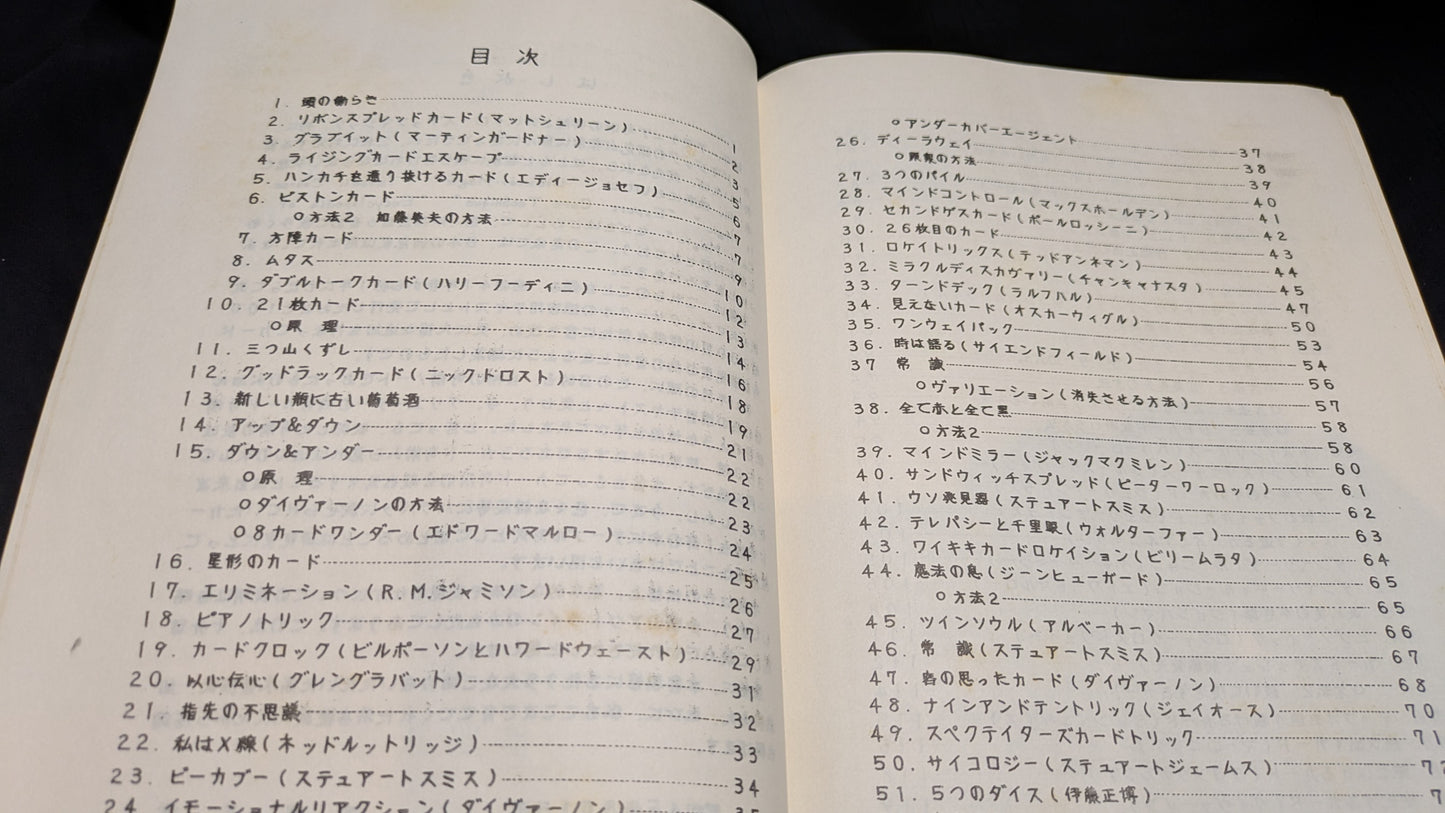 目次
1. 頭の働らき 1
2. リボンスプレッドカード(マットシュリーン) 2
3. グラブイット(マーティンガードナー) 3
4. ライジングカードエスケープ 5
5. ハンカチを通り抜けるカード(エディージョセフ) 6
6. ピストンカード 7
○方法2 加藤英夫の方法 7
7. 方陣カード 9
8. ムタス 10
9. ダブルトークカード(ハリーフーディニ) 12
10. 21枚カード 13
○原 理 14
11. 三つ山くずし 16
12. グッドラックカード(ニックドロスト) 18
13. 新しい瓶に古い葡萄酒 19
14. アップ&ダウン 21
15. ダウン&アンダー 22
○原 理 22
○ダイヴァーノンの方法 23
○8カードワンダー(エドワードマルロー) 24
16. 星形のカード 25
17. エリミネーション(R.M.ジャミソン) 26
18. ピアノトリック 27
19. カードクロック(ビルポーソンとハワードウェースト) 29
20. 以心伝心(グレングラバット) 31
21. 指先の不思議 32
22. 私はX線(ネッドルットリッジ) 33
23. ピーカブー(ステュアートスミス) 34
24. イモーショナルリアクション(ダイヴァーノン) 35
○アンダーカバーエージェント 37
26. ディーラウェイ 38
○の方法 39
27. 3つのパイル 40
28. マインドコントロール(マックスホールデン) 41
29. セカンドゲスカード(ポールロッシーニ) 42
30. 26枚目のカード 43
31. ロケイトリックス(テッドアンネマン) 44
32. ミラクルディスカヴァリー(チャンキャナスタ) 45
33. ターンドデック(ラルフハル) 47
34. 見えないカード(オスカーウィグル) 50
35. ワンウェイパック 53
36. 時は語る(サイエンドフィールド) 54
37 常 識 56
○ヴァリエーション(消失させる方法) 57
38. 全て赤と全て黒 58
○方法2 58
39. マインドミラー(ジャックマクミレン) 60
40. サンドウィッチスプレッド(ピーターワーロック) 61
41. ウソ発見器(ステュアートスミス) 62
42. テレパシーと千里眼(ウォルターファー) 63
43. ワイキキカードロケイション(ビリームラタ) 64
44. 魔法の息(ジーンヒューガード) 65
○方法2 65
45. ツインソウル(アルベーカー) 66
46. 常 識(ステュアートスミス) 67
47. の思ったカード(ダイヴァーノン) 68
48. ナインアンドテントリック(ジェイオース) 70
49. スペクテイターズカードトリック 71
50. サイコロジー(ステュアートジェームス)
51. 5つのダイス(伊藤正博)